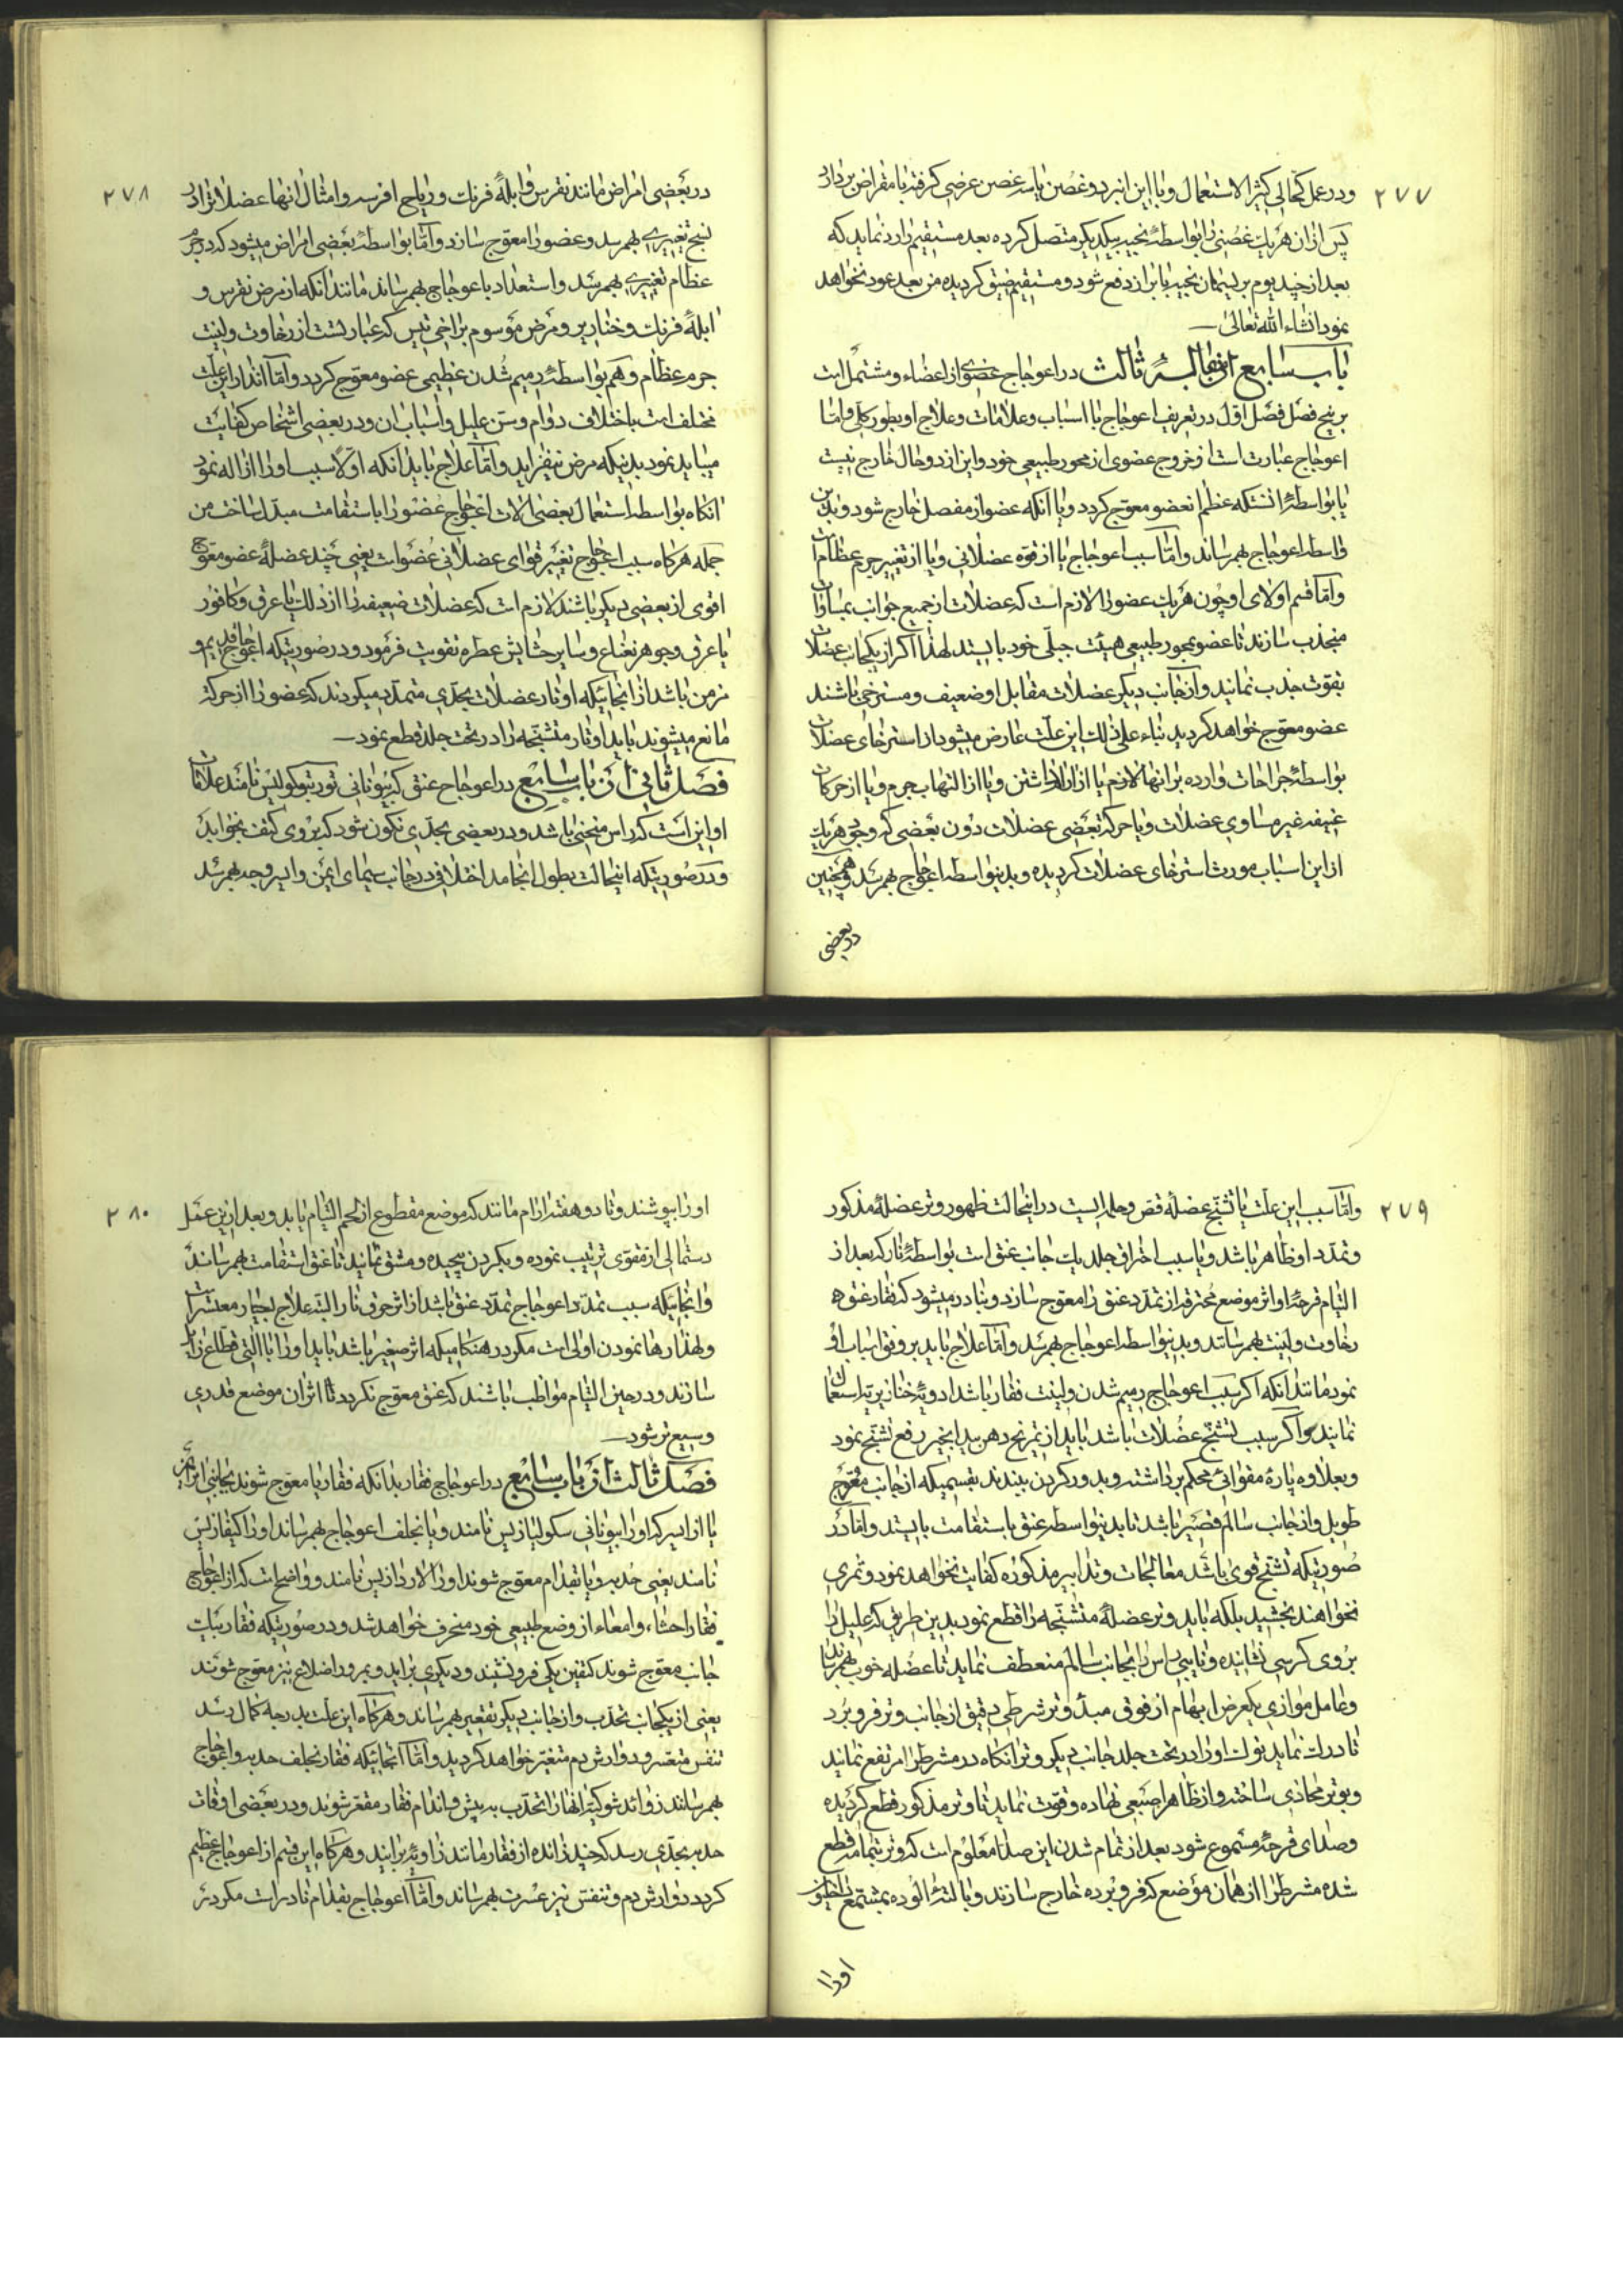 ۲۷۷
ودر عمل کحالی کثیر الاستعمال و یا با این انبر دو غصن یا سه غصن عرضی گرفته با مقراض بردارد
پس از ان هر یک غصنی را بواسطهٔ بخیه بیکدیگر متصل کرده بعده مستقیم را رد نماید که
بعد از چند یوم بر یسمان بخیه یا براز دفع شود و مستقیم ضیق گردیده من بعد عود نخواهد
نمود انشاء الله تعالی
باب سابع از مقالهٔ ثالث در اعوجاج عضوی از اعضاء و مشتمل است
بر پنج فصل فصل اول در تعریف اعوجاج با اسباب و علامات و علاج او بطور کلی و اما
اعوجاج عبارت است از خروج عضوی از محور طبیعی خود و این از دو حال خارج نیست
یا بواسطهٔ انستکه عظم انعضو معوّج گردد و یا انکه عضو از مفصل خارج شود و بدین
واسطه اعوجاج بهمرساند و امّا سبب اعوجاج یا از قوه عضلاتی و یا از تغییر جرم عظام است
و امّا قسم اولای او چون هر یک عضو را لازم است که عضلات از جمیع جوانب بمساوات
منجذب سازند تا عضو بمحور طبیعی هیئت جبلّی خود بایستد لهذا اگر از یکجانب عضلات
بقوت جذب نمایند و از جانب دیگر عضلات مقابل او ضعیف و مسترخی باشند
عضو معوّج خواهد گردید بناء علی ذلک این علّت عارض میشود از استرخای عضلات
بواسطهٔ جراحات وارده بر انها لازم یا از ازار داشتن و یا از التهاب جرم و یا از حرکات
عنیفه غیر مساوی عضلات و یا حرکت بعضی عضلات دون بعضی که وجود هر یک
از این اسباب مورث استرخای عضلات گردیده و بدینواسطه اعوجاج بهمرسد و همچنین
در بعضی
۲۷۸
در بعضی امراض مانند نقرس و ابلهٔ فرنک و ریاح افرسه و امثال انها عضلات را در
نسج تغییری بهمرسد و عضو را معوّج سازد و امّا بواسطهٔ بعضی امراض میشود که در جرم
عظام تغییری بهمرسد و استعداد باعوجاج بهمرساند مانند انکه از مرض نقرس و
ابلهٔ فرنک و خنازیر و مرض موسوم براخی تیس که عبارتست از رخاوت و لینت
جرم عظام و هم بواسطهٔ رمیم شدن عظیمی عضو معوّج گردد و امّا انذار این علت
مختلف است باختلاف دوام و سن علیل و اسباب ان و در بعضی اشخاص کفایت
میباید نمود بدینکه مرض نیفزاید و امّا علاج باید انکه اولا سبب او را ازاله نمود
انگاه بواسطه استعمال بعضی الات اعوجاج عضو را باستقامت مبدل ساخت من
جمله هرگاه سبب اعوجاج تغییر قوای عضلاتی عضوات یعنی چند عضلهٔ عضو معوّج
اقوی از بعضی دیگر باشند لازم است که عضلات ضعیفه را از دلک با عرق و کافور
یا عرق و جوهر نعناع و سایر حشایش عطره تقویت فرمود و در صورتیکه اعوجاج قدیم و
مزمن باشد از انجائیکه اوتار عضلات بحدّی متمدّد میگردند که عضو را از حرکت
مانع میشوند باید اوتار متشنّجه را در تحت جلد قطع نمود
فصل ثانی از باب سابع در اعوجاج عنق که بیونانی تورتیکولیس نامند علامات
او این است که راس منحنی باشد و در بعضی بحدّی نکون شود که بروی کتف بخوابد
و در صورتیکه اینحالت بطول انجامد اختلافی در جانب سیمای ایمن و ایسر وجه بهمرسد
۲۷۹
و امّا سبب این علت یا تشنّج عضلهٔ قص و حلمه ایست در اینحالت ظهور وتر عضلهٔ مذکور
و تمدّد او ظاهر باشد و یا سبب احراق جلد یک جانب عنق است بواسطهٔ نار که بعد از
التیام قرحه او اثر موضع محترقه از تمدّد عنق را معوّج سازد و نادر میشود که فقار عنق
رخاوت و لینت بهمرسانند و بدینواسطه اعوجاج بهمرسد و امّا علاج باید بر وفق اسباب او
نمود مانند انکه اگر سبب اعوجاج رمیم شدن و لینت فقار باشد ادویهٔ خنازیریه استعمال
نمایند و اگر سبب تشنّج عضلات باشد باید از تمریخ دهن بید انجیر رفع تشنّج نمود
و بعلاوه پارهٔ مقوائی محکم برداشته و بدور گردن ببندند بقسمیکه از جانب معوّج
طویل و از جانب سالم قصیر باشد تا بدینواسطه عنق باستقامت بایستد و امّا در
صورتیکه تشنّج قوی باشد معالجات و تدابیر مذکوره کفایت نخواهد نمود و ثمری
نخواهند بخشید بلکه باید وتر عضلهٔ متشنّجه را قطع نمود بدین طریق که علیل را
بروی کرسی نشانیده و نایبی راس را بجانب سالم منعطف نماید تا عضله خوب بهمرساند
و عامل موازی یکعرض ابهام از فوق مبدء وتر شرطی دقیق از جانب وتر فرو برد
تا درک نماید نوک او را در تحت جلد جانب دیگر وتر انگاه در مشرط را مرتفع نماید
و بوتر محاذی ساخته و از ظاهر اصبعی نهاده و قوت نماید تا وتر مذکور قطع گردیده
و صدای قرحه مسموع شود بعد از تمام شدن این صدا معلوم است که وتر بتمامه قطع
شده مشرط را از همان موضع که فرو برده خارج سازند و با لتهٔ الوده بمشمع
او را
۲۸۰
او را بپوشند و تا دو هفته ارام مانند که موضع مقطوع از لحم التیام یابد و بعد از این عمل
دستمالی از مقوی ترتیب نموده و بگردن پیچیده و مشق نمایند تا عنق استقامت بهمرساند
و انجائیکه سبب تمدّد اعوجاج تمدّد عنق باشد از اثر حرق نار البته علاج بسیار معسّر است
و لهذا رها نمودن اولی است مگر در هنگامیکه اثر صغیر باشد باید او را با التی قطاع زائل
سازند و در حین التیام مواظب باشند که عنق معوّج نگردد تا اثر ان موضع قدری
وسیع تر شود
فصل ثالث از باب سابع در اعوجاج فقار بدانکه فقار یا معوّج شوند بجانبی از ایمن
یا از ایسر که او را بیونانی سکولیازیس نامند و یا بخلف اعوجاج بهمرساند او را کیفازیس
نامند یعنی حدبه و یا بقدام معوّج شوند او را لاردازیس نامند و واضح است که از اعوجاج
فقار احشاء و امعاء از وضع طبیعی خود منحرف خواهد شد و در صورتیکه فقار بیک
جانب معوّج شوند کتفین یکی فرو نشیند و دیگری براید و بمرور اضلاع نیز معوّج شوند
یعنی از یکجانب تحدّب و از جانب دیگر تقعیر بهمرساند و هرگاه این علت بدرجه کمال رسد
تنفس متعسر و دوارش دم متغیّر خواهد گردید و امّا انجائیکه فقار بخلف حدبه و اعوجاج
بهمرسانند زوائد شوکیهٔ انها را تحدّب به پیش و اندام فقار مقعّر شوند و در بعضی اوقات
حدبه بحدّی رسد که چند زائده از فقار مانند زاویه برایند و هرگاه این قسم از اعوجاج عظیم
گردد دوارش دم و تنفّس نیز عسرت بهمرساند و امّا اعوجاج بقدام نادر است مگر در